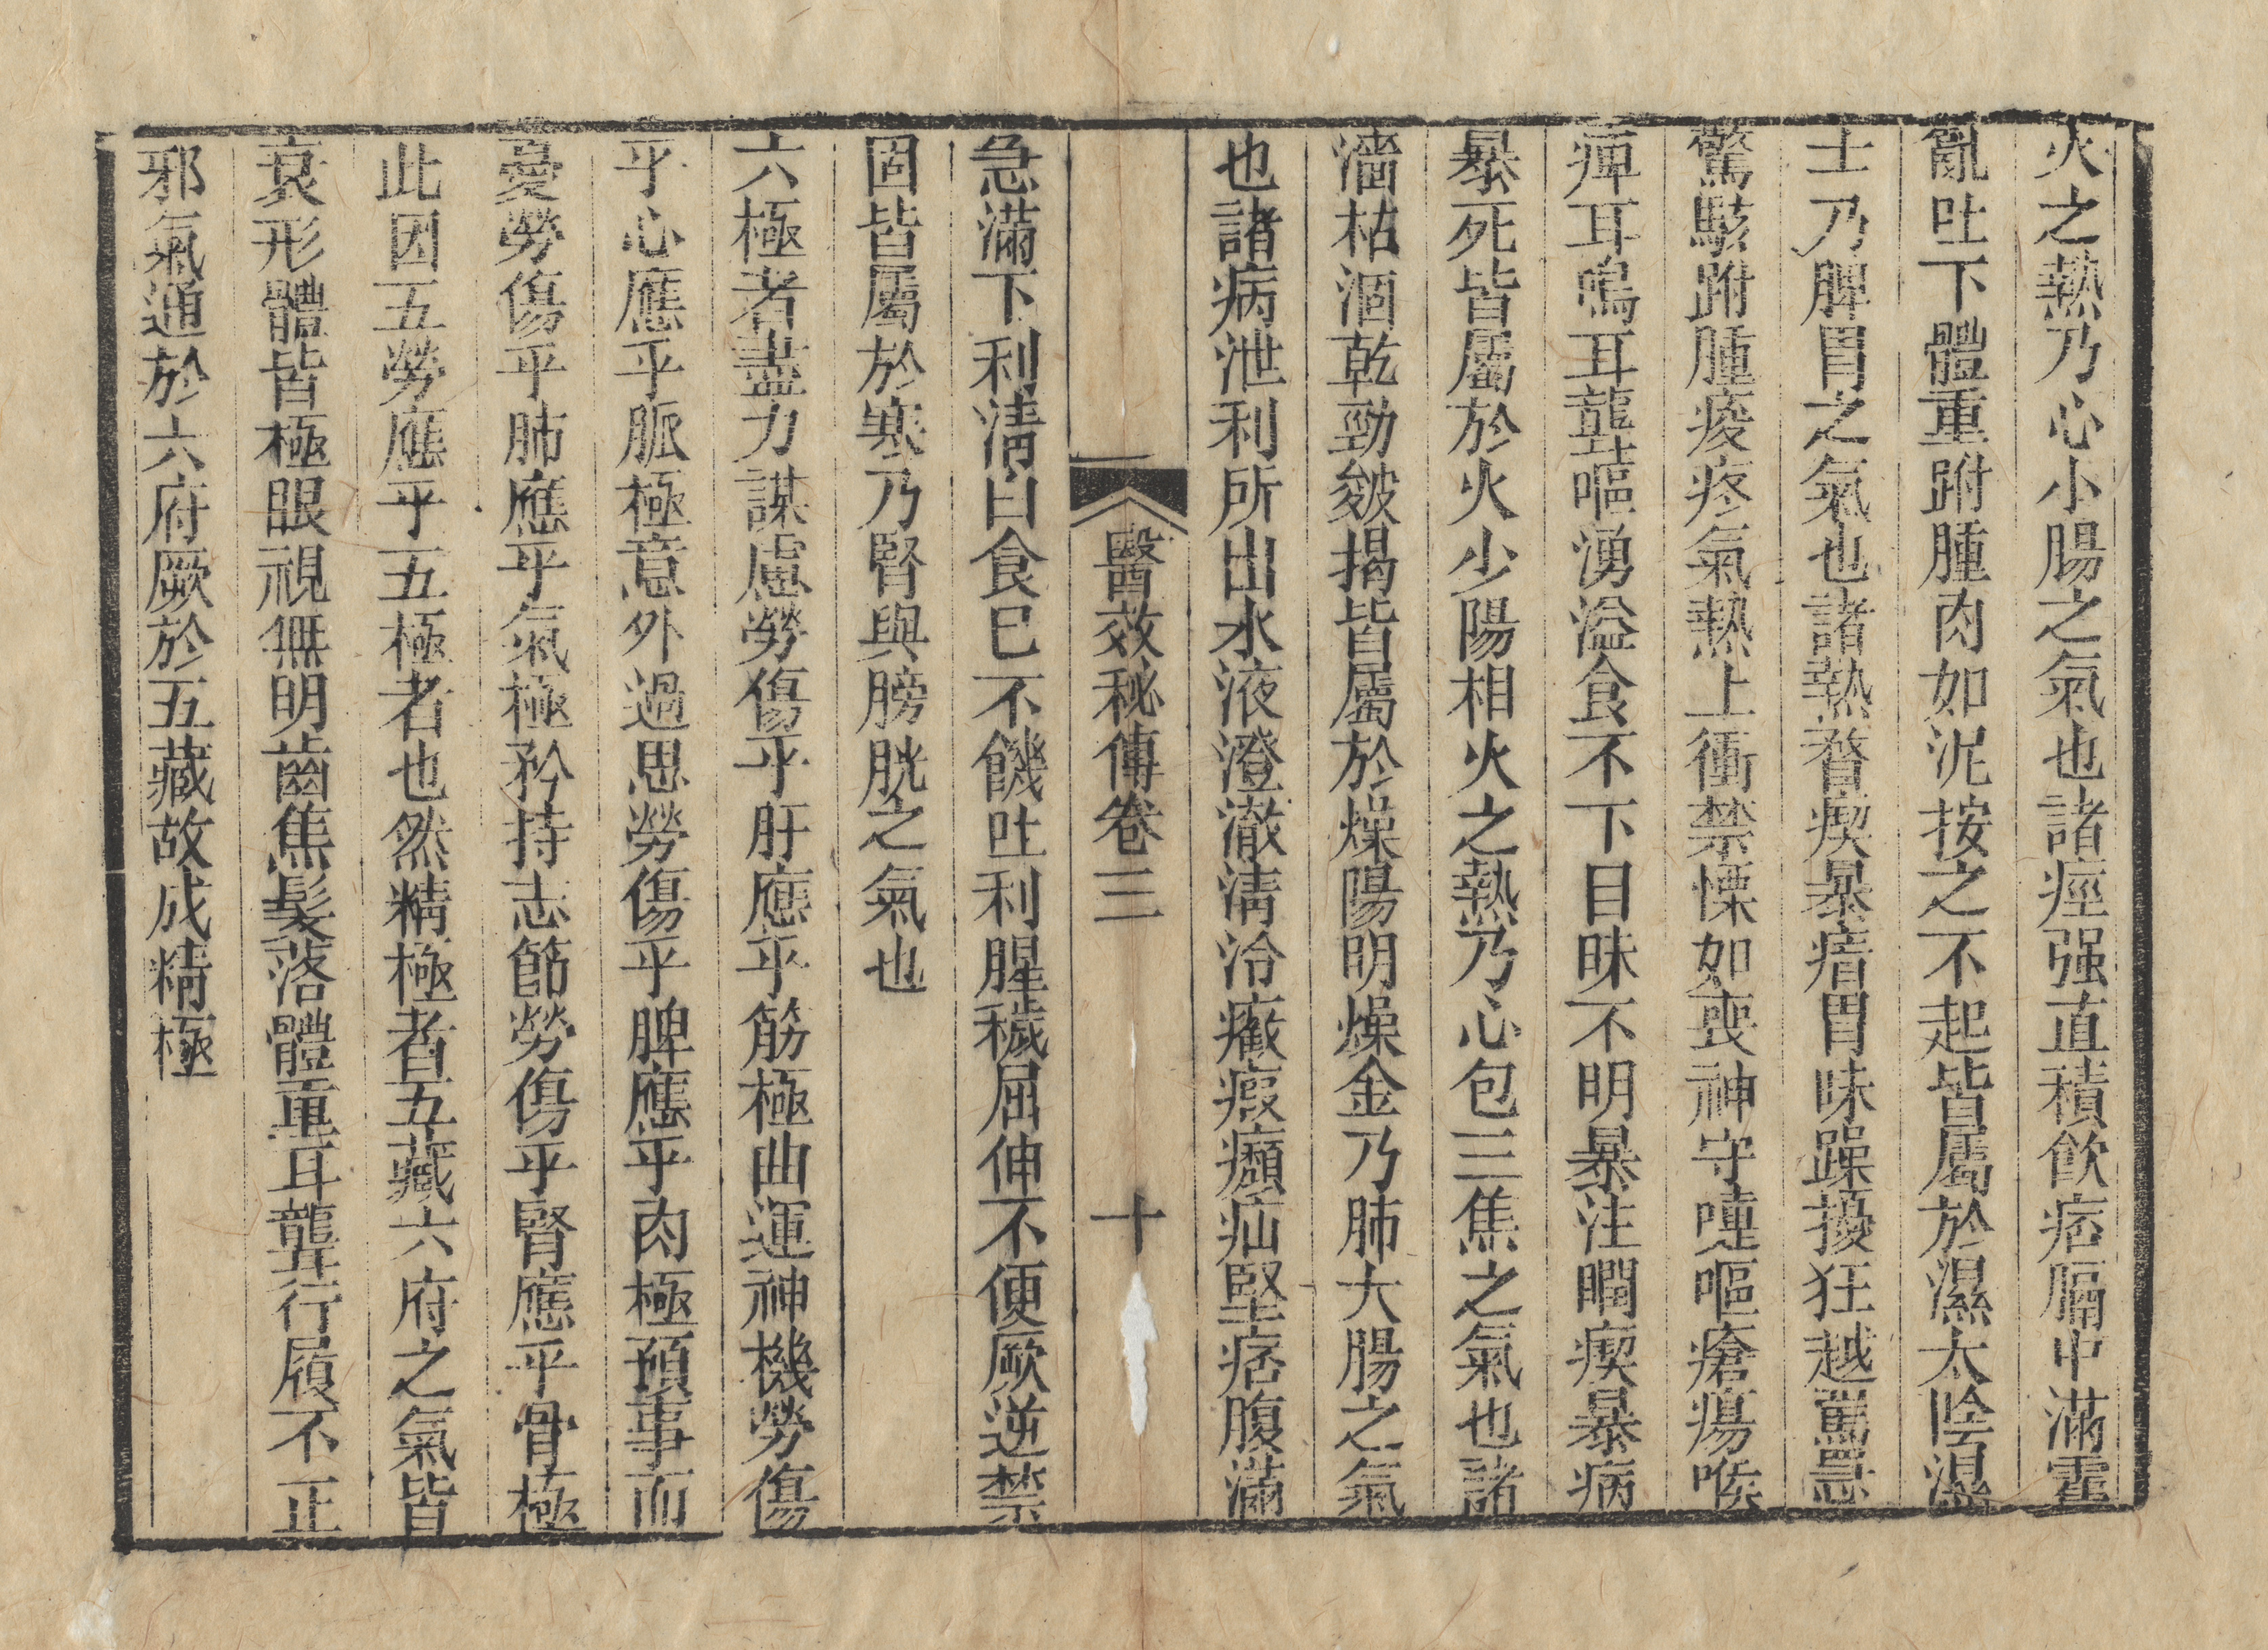 火之熱乃心小腸之氣也諸痙强直積飲痞膈中滿霍
亂吐下體重跗腫肉如泥按之不起皆屬於濕太陰濕
土乃脾胃之氣也諸熱瞀瘈暴瘖冒昧躁擾狂越罵詈
驚駭跗腫痠疼氣熱上衝禁慄如喪神守嚏嘔瘡瘍喉
痺耳鳴耳聾嘔湧溢食不下目昧不明暴注瞤瘈暴病
暴死皆屬於火少陽相火之熱乃心包三焦之氣也諸
濇枯涸乾勁皴揭皆屬於燥陽明燥金乃肺大腸之氣
也諸病泄利所出水液澄澈淸冷癥瘕㿗疝堅痞腹滿
醫效秘傳卷三　十
急滿下利淸白食已不饑吐利腥穢屈伸不便厥逆禁
固皆屬於寒乃腎與膀胱之氣也
六極者盡力謀慮勞傷乎肝應乎筋極曲運神機勞傷
乎心應乎脈極意外過思勞傷乎脾應乎肉極預事而
憂勞傷乎肺應乎氣極矜持志節勞傷乎腎應乎骨極
此因五勞應乎五極者也然精極者五藏六府之氣皆
衰形體皆極眼視無明齒焦髮落體重耳聾行履不正
邪氣通於六府厥於五藏故成精極